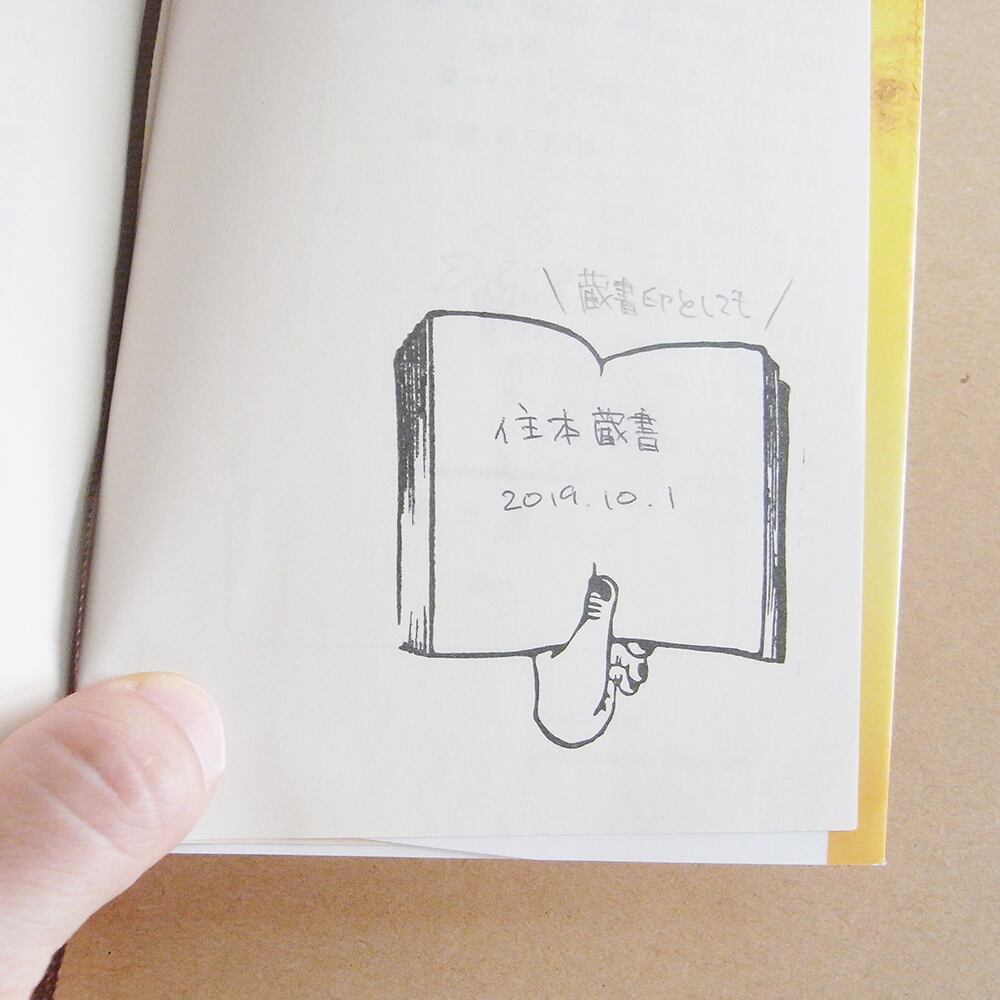 \ 蔵書印としても /
住本蔵書
2019.10.1